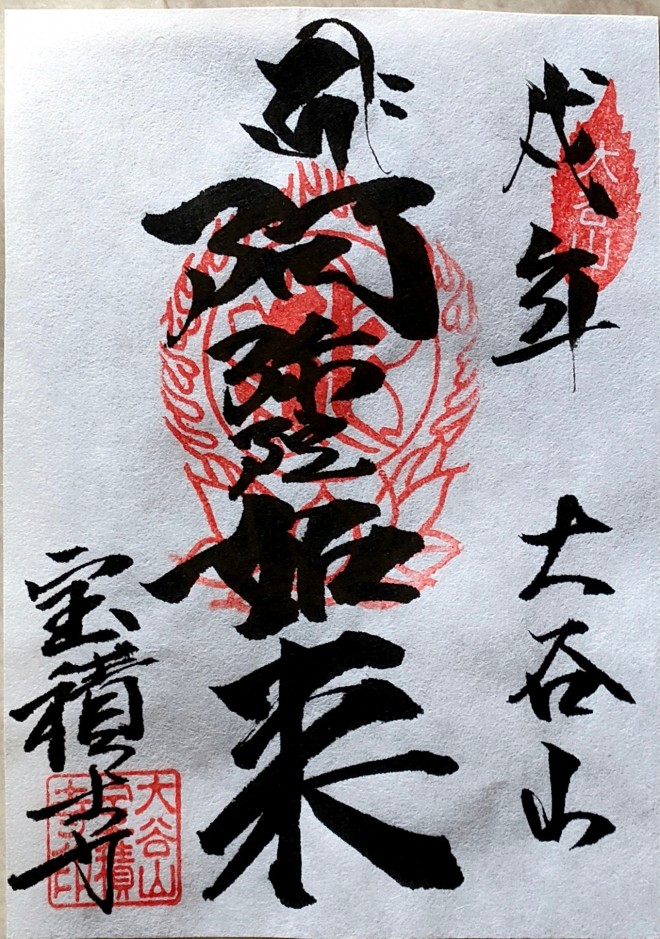 戌年
大谷山
大谷山
阿弥陀如来
宝積寺
大谷山
宝積
寺印